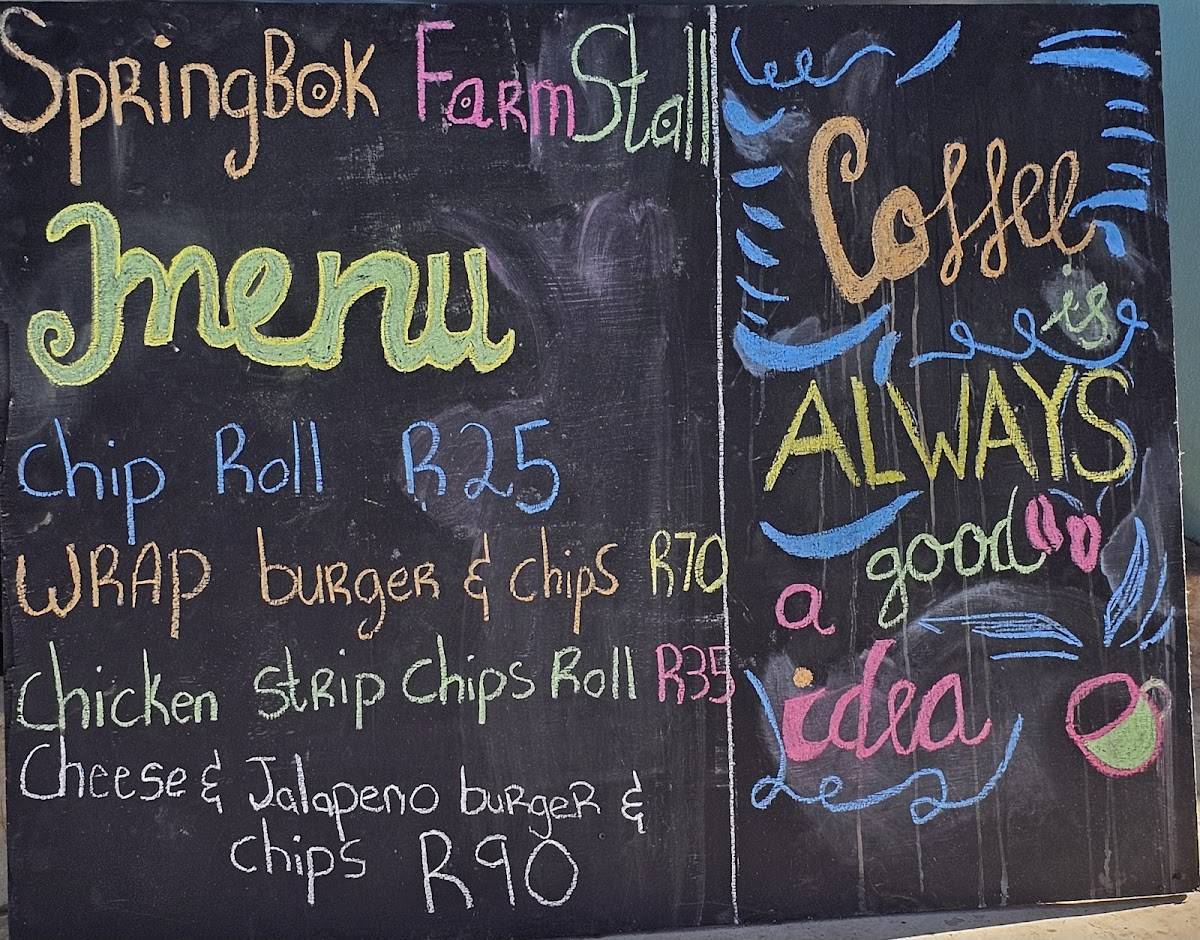 SpringBok Farm Stall
menu
Chip Roll R25
WRAP burger & chips R70
Chicken Strip Chips Roll R35
Cheese & Jalapeno burger &
chips R90
Coffee
is
ALWAYS
a good
idea